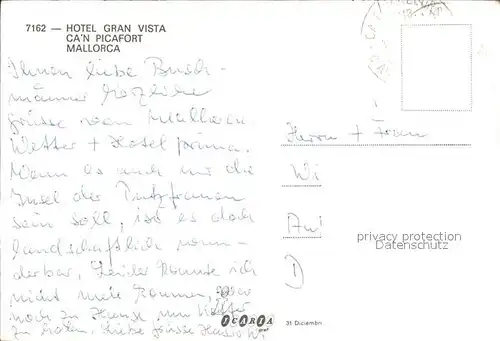 7162 — HOTEL GRAN VISTA
CA'N PICAFORT
MALLORCA
Ihnen liebe Busch-
männer herzliche
Grüsse von Mallorca.
Wetter + Hotel prima.
Wenn es auch nur die
Insel der Putzfrauen
sein soll, ist es doch
landschaftlich wun-
derbar, Leider konnte ich
nicht mehr kommen, aber
noch zu Hause um Koffer
zu holen. Liebe Grüsse
Herrn + Frau
Wi
An
D
privacy protection
Datenschutz
ICARIA
31 Diciembre